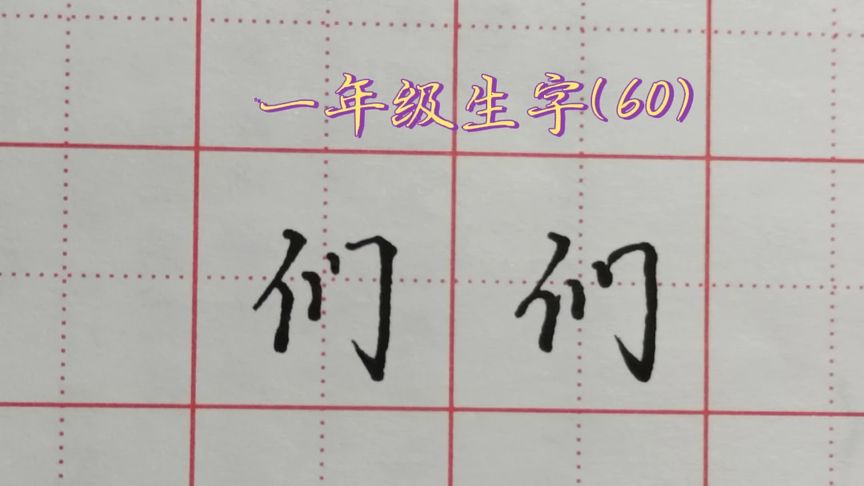 一年级生字(60)
们 们